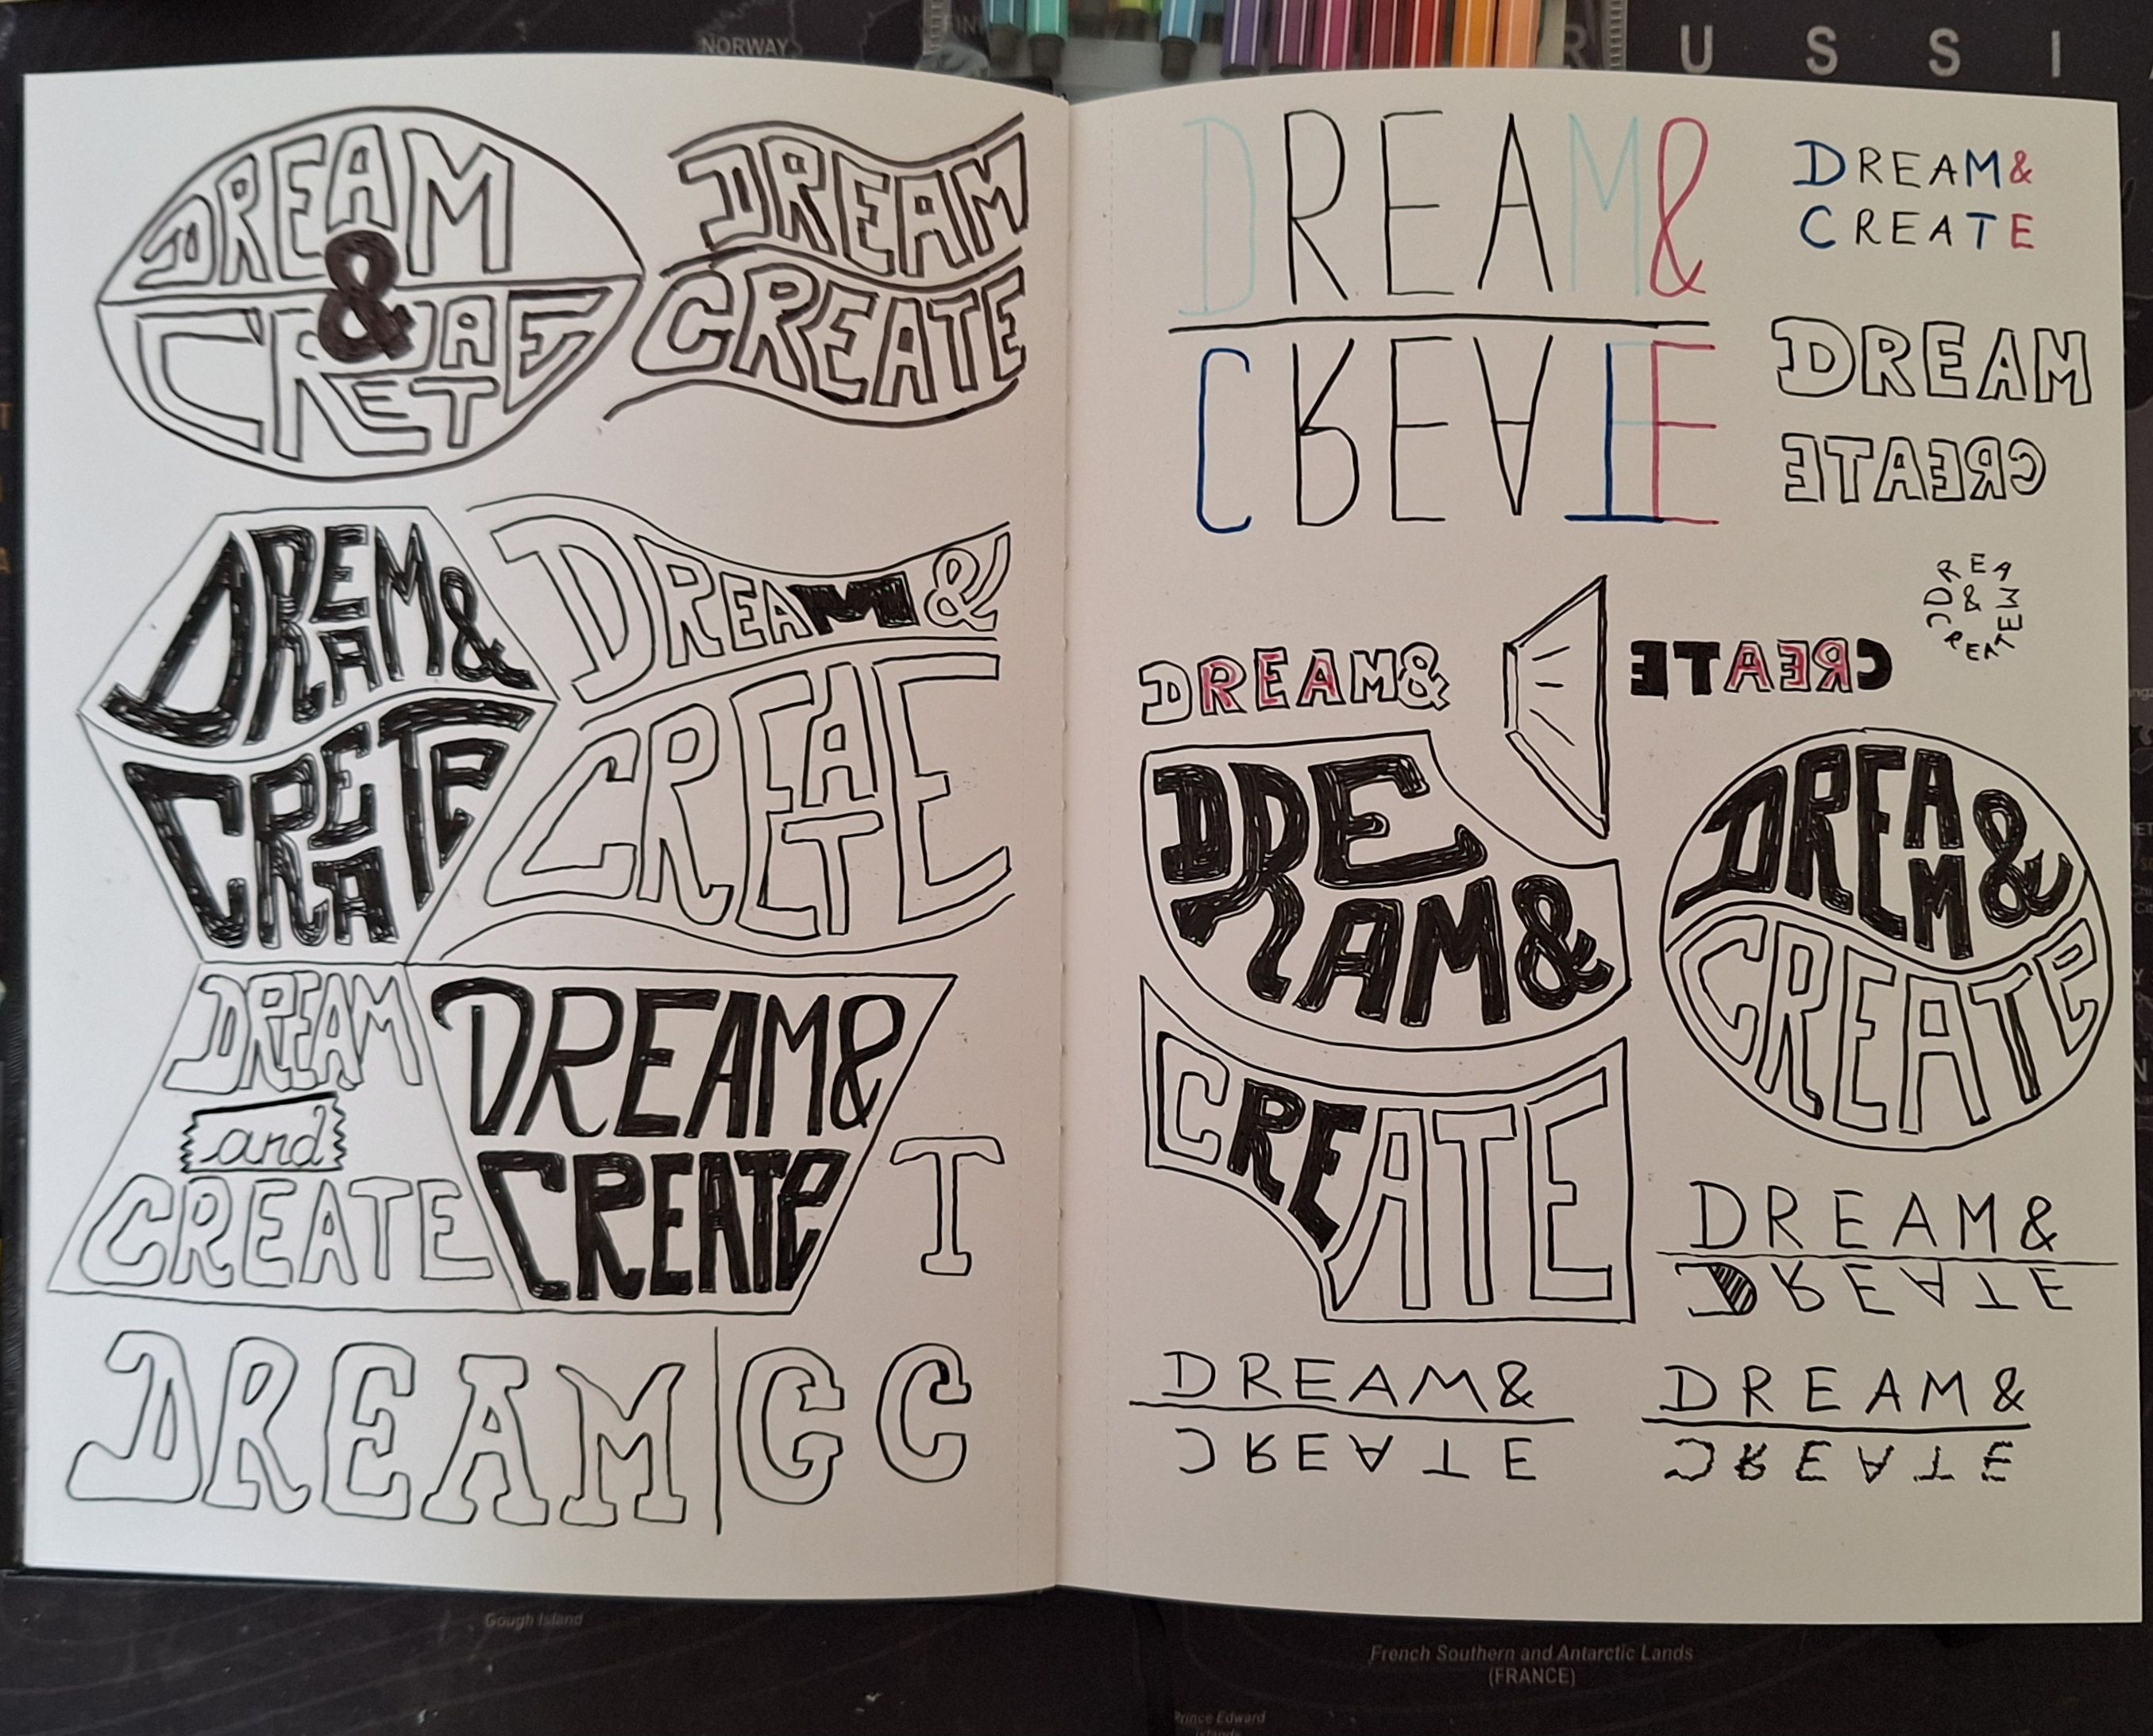 NORWAY
R U S S I
DREAM
&
CREATE
DREAM
CREATE
DREAM&
CREATE
DREAM&
CREATE
DREAM
and
CREATE
DREAM&
CREATE
T
DREAM | G C
DREAM&
CREATE
DREAM&
CREATE
DREAM
CREATE
DREAM
&
CREATE
DREAM&
CREATE
DDREAM&
CREATE
DREAM&
CREATE
DREAM&
CREATE
DREAM&
CREATE
DREAM&
CREATE
Gough Island
French Southern and Antarctic Lands
(FRANCE)
Prince Edward
Islands